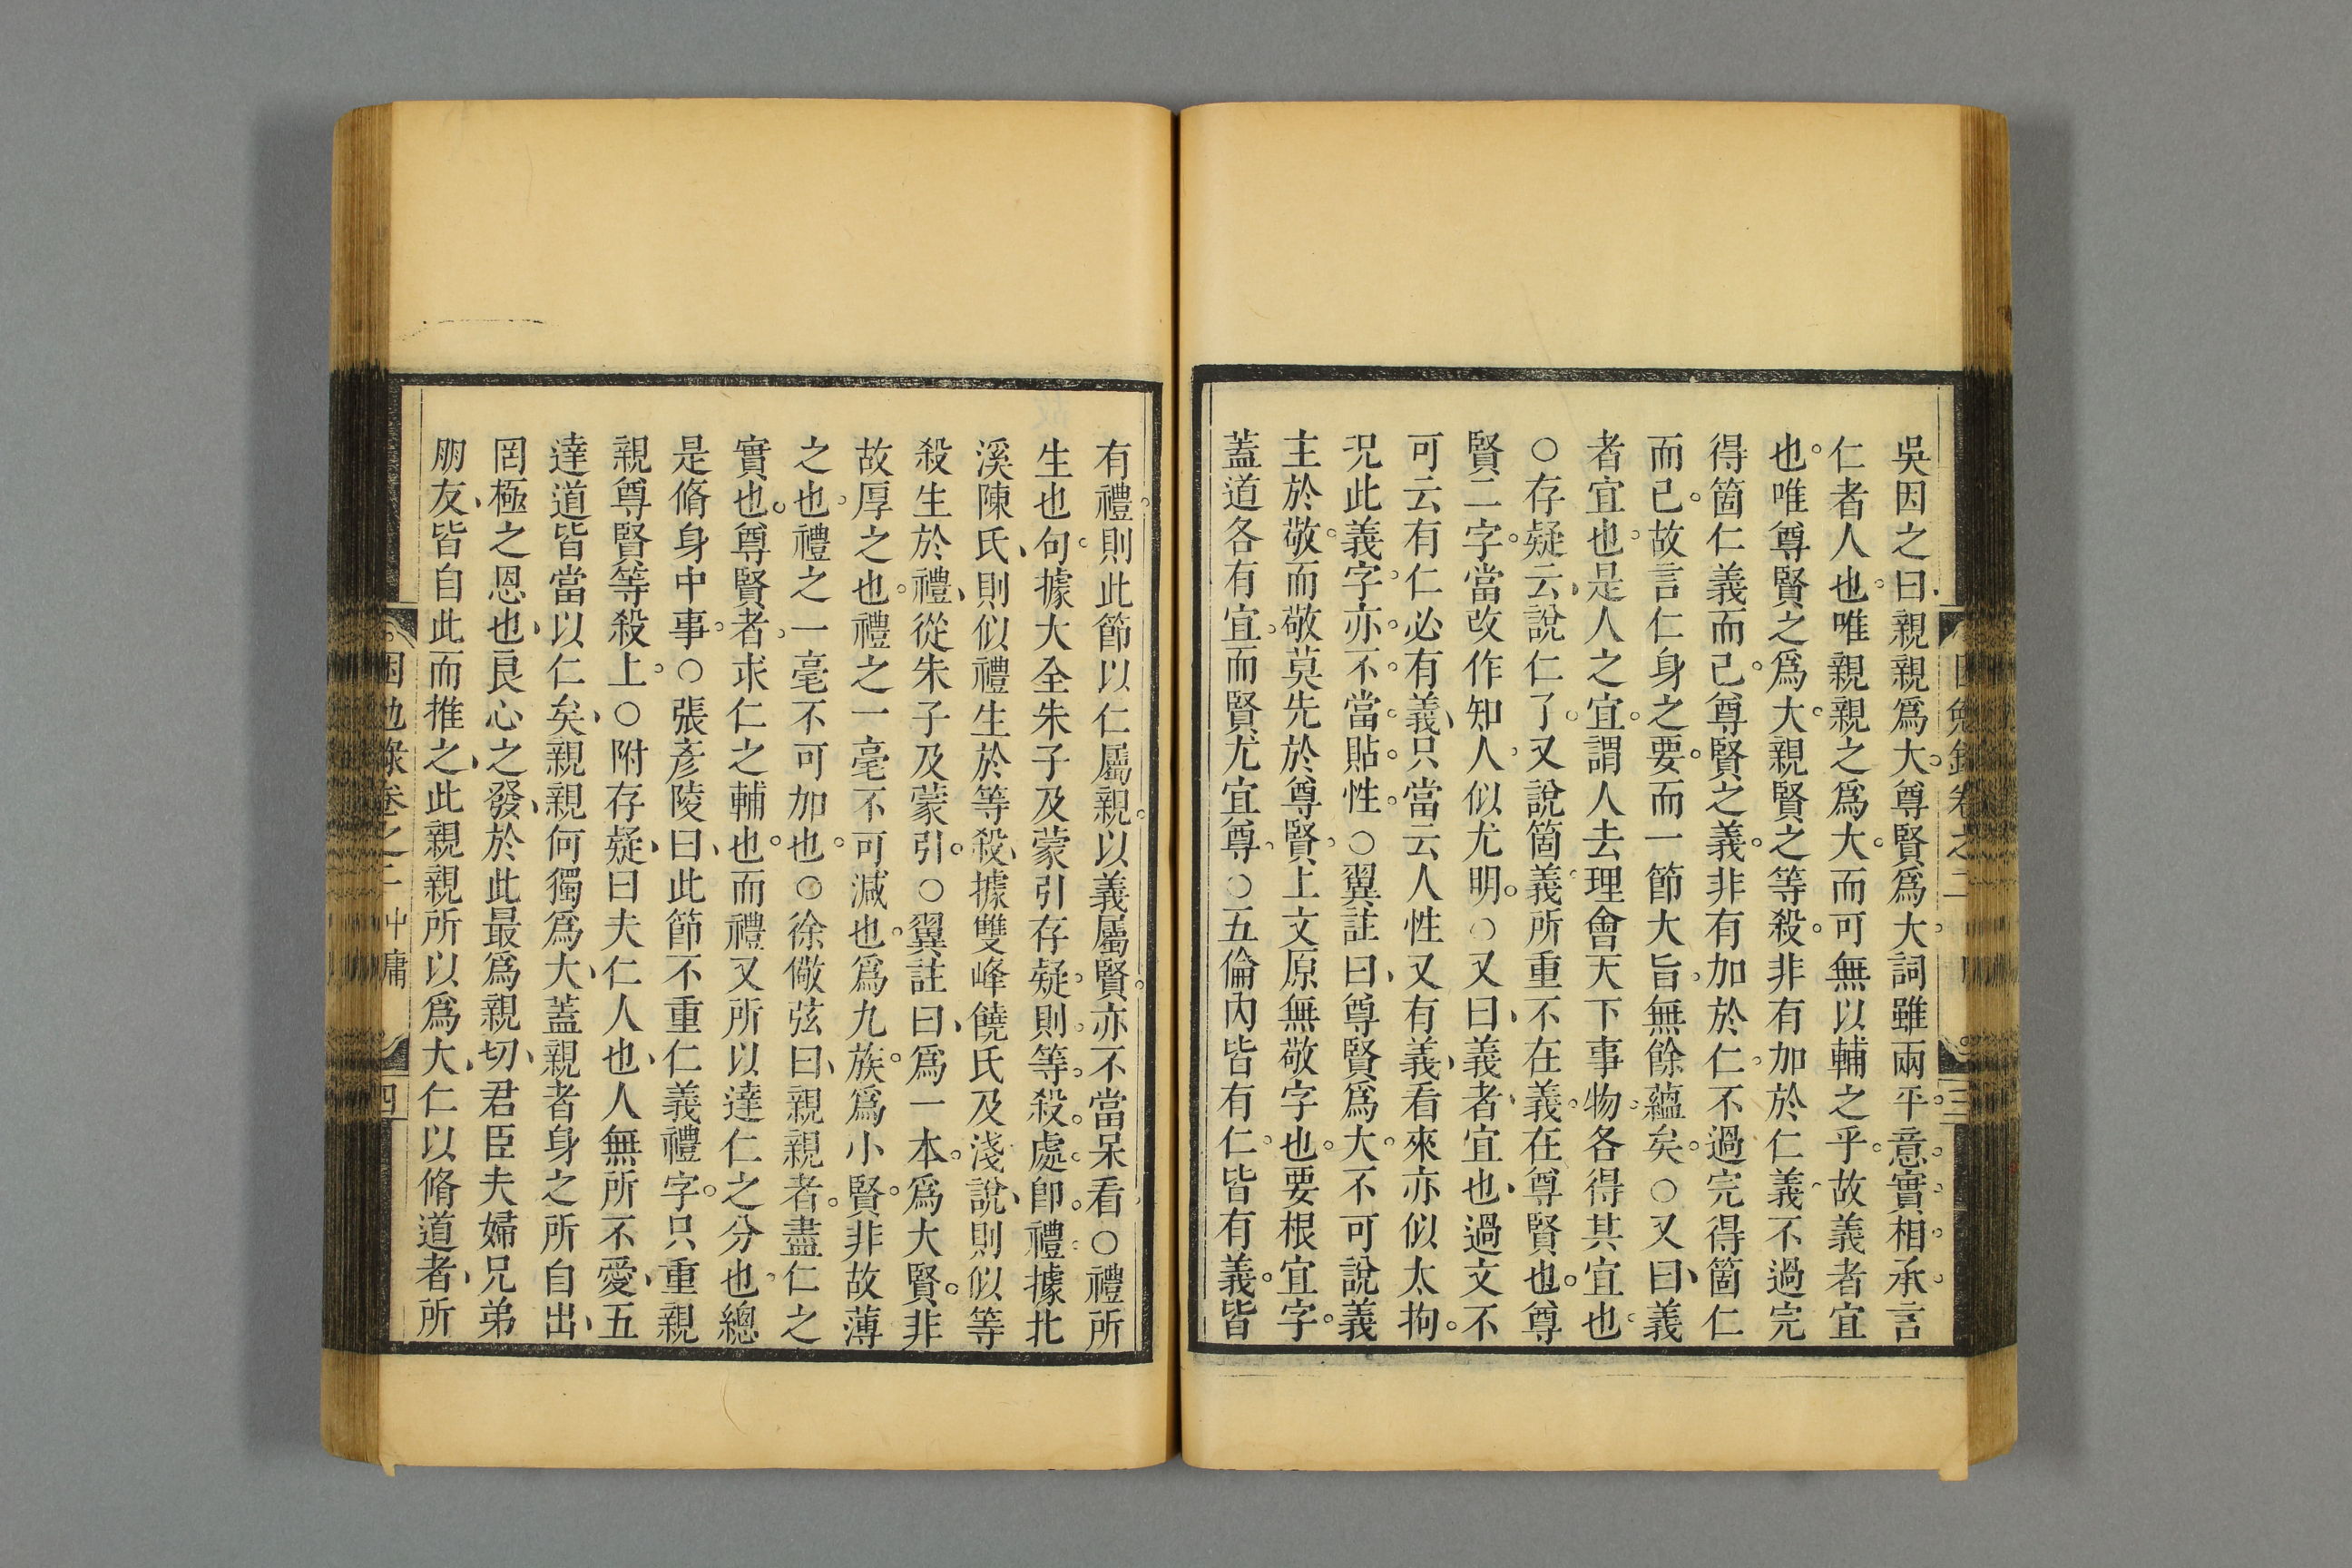 吳因之曰親親爲大尊賢爲大詞雖兩平意實相承言
仁者人也唯親親之爲大而可無以輔之乎故義者宜
也唯尊賢之爲大親賢之等殺非有加於仁義不過完
得箇仁義而已尊賢之義非有加於仁不過完得箇仁
而已故言仁身之要而一節大旨無餘蘊矣○又曰義
者宜也是人之宜謂人去理會天下事物各得其宜也
○存疑云說仁了又說箇義所重不在義在尊賢也尊
賢二字當改作知人似尤明○又曰義者宜也過文不
可云有仁必有義只當云人性又有義看來亦似太拘
況此義字亦不當貼性○翼註曰尊賢爲大不可說義
主於敬而敬莫先於尊賢上文原無敬字也要根宜字
蓋道各有宜而賢尤宜尊○五倫內皆有仁皆有義皆
有禮則此節以仁屬親以義屬賢亦不當呆看○禮所
生也句據大全朱子及蒙引存疑則等殺處卽禮據北
溪陳氏則似禮生於等殺據雙峰饒氏及淺說則似等
殺生於禮從朱子及蒙引○翼註曰爲一本爲大賢非
故厚之也禮之一毫不可減也爲九族爲小賢非故薄
之也禮之一毫不可加也○徐儆弦曰親親者盡仁之
實也尊賢者求仁之輔也而禮又所以達仁之分也總
是脩身中事○張彥陵曰此節不重仁義禮字只重親
親尊賢等殺上○附存疑曰夫仁人也人無所不愛五
達道皆當以仁矣親親何獨爲大蓋親者身之所自出
罔極之恩也良心之發於此最爲親切君臣夫婦兄弟
朋友皆自此而推之此親親所以爲大仁以脩道者所
困勉錄卷之二 中庸 四